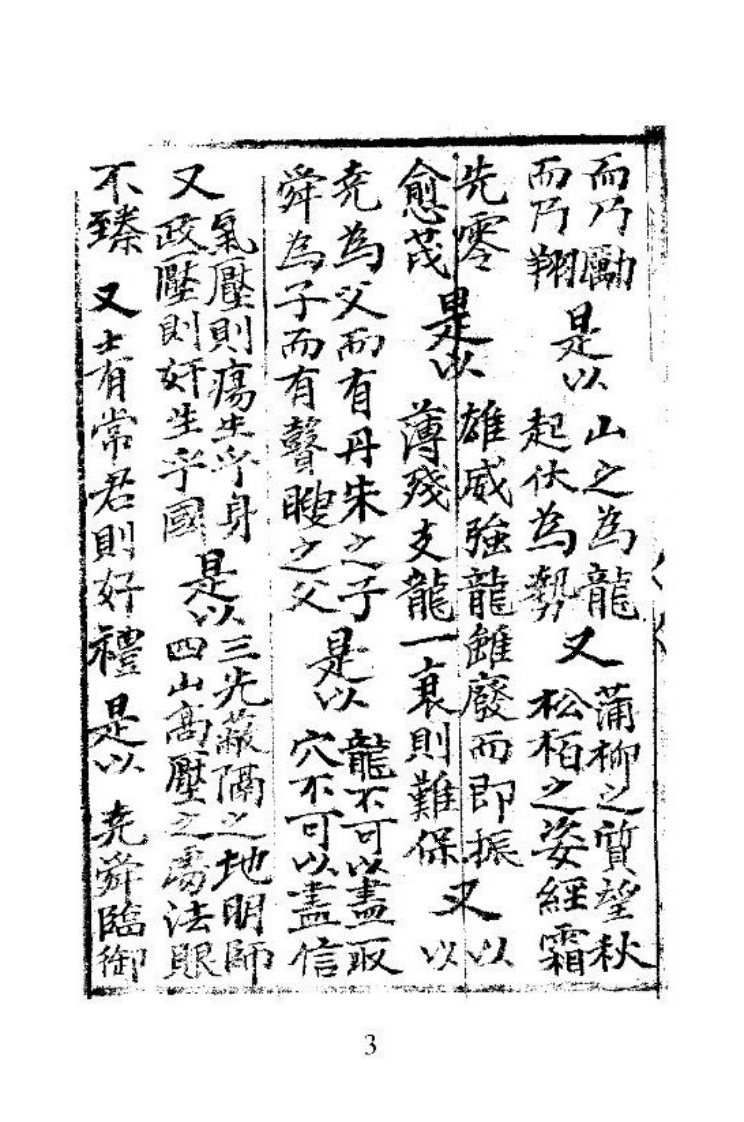 而乃勵
而乃翔
是以
山之為龍
起伏為勢
又
蒲柳之質望秋
松栢之姿經霜
先零
愈茂
是以
雄威強龍雖廢而即振
薄殘支龍一衰則難保
又
以
以
堯為父而有丹朱之子
舜為子而有瞽瞍之父
是以
龍不可以盡取
穴不可以盡信
又
氣壓則瘍生乎身
政壓則奸生乎國
是以
三光蔽隔之地明師
四山高壓之處法眼
不臻 又 士有常君則好禮 是以 堯舜臨御
3